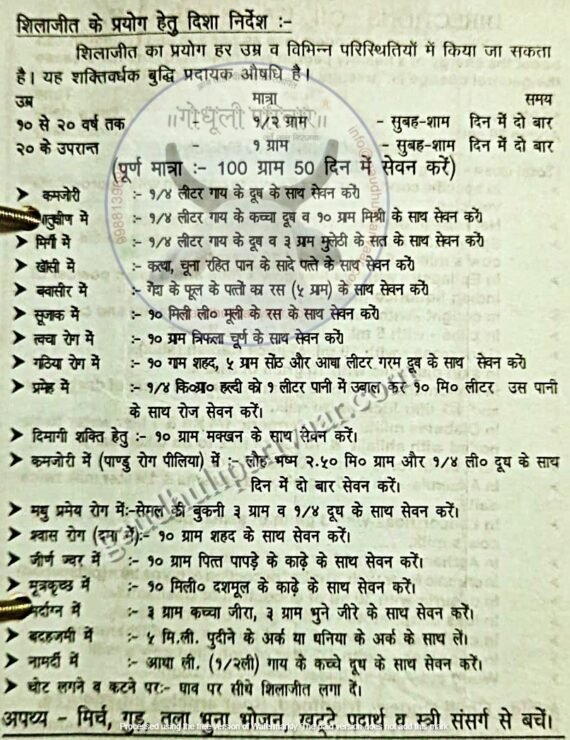 शिलाजीत के प्रयोग हेतु दिशा निर्देश :-
शिलाजीत का प्रयोग हर उम्र व विभिन्न परिस्थितियों में किया जा सकता
है। यह शक्तिवर्धक बुद्धि प्रदायक औषधि है।
उम्र मात्रा समय
१० से २० वर्ष तक - १/२ ग्राम - सुबह-शाम दिन में दो बार
२० के उपरान्त - १ ग्राम - सुबह-शाम दिन में दो बार
(पूर्ण मात्रा :- 100 ग्राम 50 दिन में सेवन करें)
➤ कमजोरी :- १/४ लीटर गाय के दूध के साथ सेवन करें।
में :- १/४ लीटर गाय के कच्चा दूध व १० ग्राम मिश्री के साथ सेवन करें।
➤ मिर्गी में :- १/४ लीटर गाय के दूध व ३ ग्राम मुलेठी के सत के साथ सेवन करें।
➤ खाँसी में :- कत्था, चूना रहित पान के सादे पत्ते के साथ सेवन करें।
➤ बवासीर में :- गेंदा के फूल के पत्तों का रस (५ ग्राम) के साथ सेवन करें।
➤ सूजाक में :- १० मिली ली० मूली के रस के साथ सेवन करें।
➤ त्वचा रोग में :- १० ग्राम त्रिफला चूर्ण के साथ सेवन करें।
➤ गठिया रोग में :- १० गाम शहद, ५ ग्राम सोंठ और आधा लीटर गरम दूध के साथ सेवन करें।
➤ प्रमेह में :- १/४ कि०ग्रा० हल्दी को १ लीटर पानी में उबाल कर १० मि० लीटर उस पानी
के साथ रोज सेवन करें।
➤ दिमागी शक्ति हेतु :- १० ग्राम मक्खन के साथ सेवन करें।
➤ कमजोरी में (पाण्डु रोग पीलिया) में :- लौह भष्म २.५० मि० ग्राम और १/४ ली० दूध के साथ
दिन में दो बार सेवन करें।
➤ मधु प्रमेय रोग में:-सेमल की बुकनी ३ ग्राम व १/४ दूध के साथ सेवन करें।
➤ श्वास रोग (दमा में):- १० ग्राम शहद के साथ सेवन करें।
➤ जीर्ण ज्वर में :- १० ग्राम पित्त पापड़े के काढ़े के साथ सेवन करें।
➤ मूत्रकृच्छ में :- १० मिली० दशमूल के काढ़े के साथ सेवन करें।
में :- ३ ग्राम कच्चा जीरा, ३ ग्राम भुने जीरे के साथ सेवन करें।
➤ बदहजमी में :- ५ मि.ली. पुदीने के अर्क या धनिया के अर्क के साथ लें।
➤ नामर्दी में :- आधा ली. (१/२ली) गाय के कच्चे दूध के साथ सेवन करें।
➤ चोट लगने व कटने पर:- घाव पर सीधे शिलाजीत लगा दें।
अपथ्य - मिर्च, गुड़, तला भुना भोजन, खट्टे पदार्थ व स्त्री संसर्ग से बचें।
॥गोधूली परिवार॥
gaudhuliparivaar.com